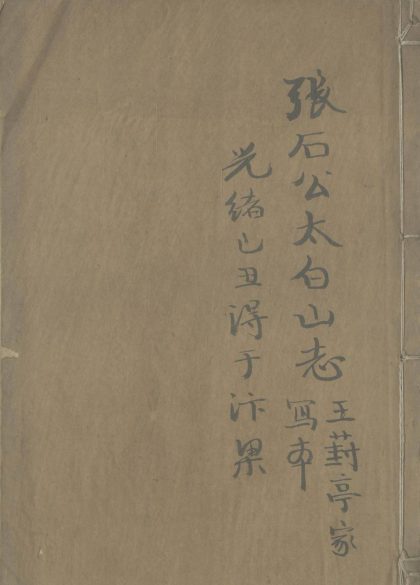 張石公太白山志
王葑亭家
寫本
光緒己丑得于汴梁